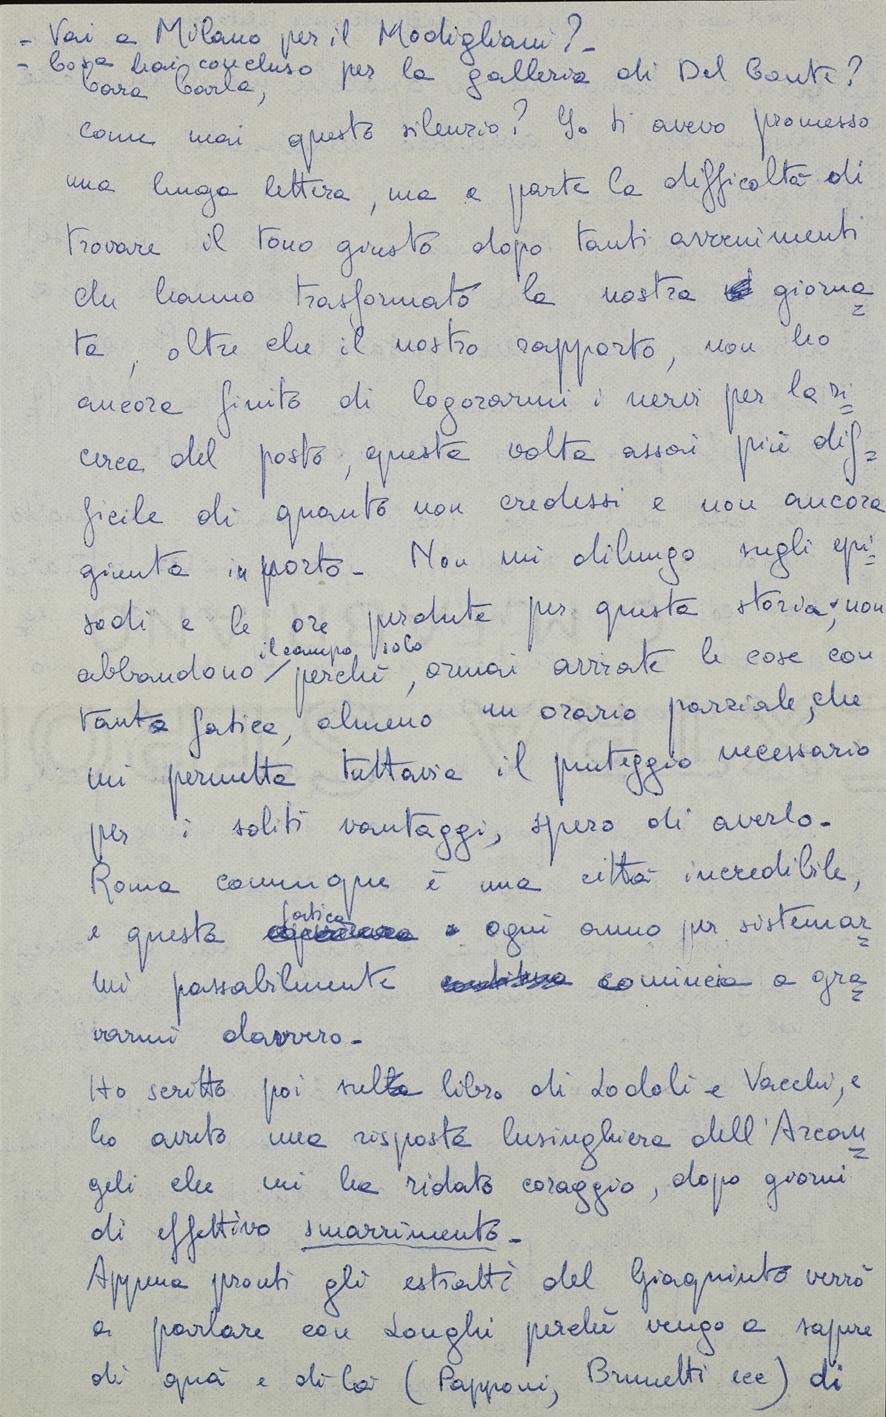 - Vai a Milano per il Modigliani? -
- Cosa hai concluso per la galleria di Del Conte?
Cara Carla,
come mai questo silenzio? Io ti avevo promesso
una lunga lettera, ma a parte la difficoltà di
trovare il tono giusto dopo tanti avvenimenti
che hanno trasformato la nostra giorna=
ta, oltre che il nostro rapporto, non ho
ancora finito di logorarmi i nervi per la ri=
cerca del posto, questa volta assai più dif=
ficile di quanto non credessi e non ancora
giunta in porto - Non mi dilungo sugli epi=
sodi e le ore perdute per questa storia; non
abbandono il campo solo perchè, ormai arrivate le cose con
tanta fatica, almeno un orario parziale, che
mi permetta tuttavia il punteggio necessario
per i soliti vantaggi, spero di averlo -
Roma comunque è una città incredibile,
e questa fatica ogni anno per sistemar=
mi passabilmente comincia a gra=
varmi davvero -
Ho scritto poi sul libro di Lodoli e Vacchi, e
ho avuto una risposta lusinghiera dell'Arcan=
geli che mi ha ridato coraggio, dopo giorni
di effettivo smarrimento -
Appena pronti gli estratti del Giaquinto verrò
a parlare con Longhi perchè vengo a sapere
di quà e di là (Papponi, Brunetti ecc) di